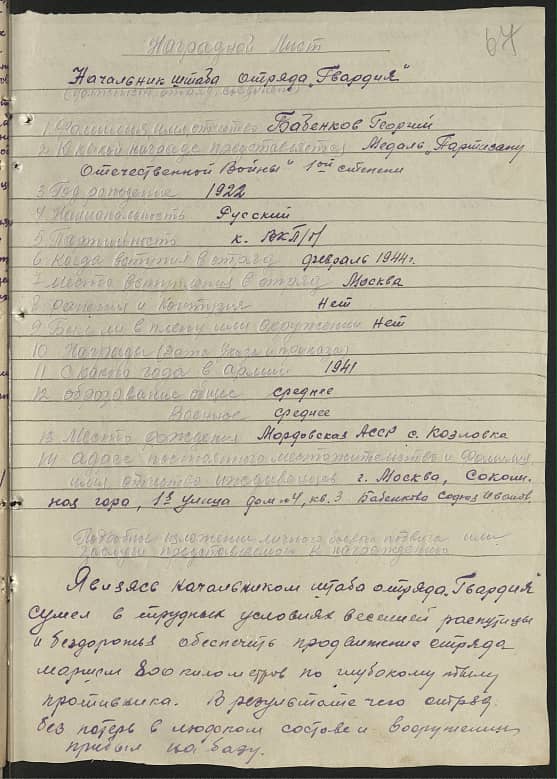 67
Наградной Лист
Начальник штаба отряда „Гвардия"
(должность отряд, соединение)
1 Фамилия имя отчество Бабенков Георгий
2 К какой награде представляется Медаль „Партизану
Отечественной Войны" 1ой степени
3 Год рождения 1922
4 Национальность Русский
5 Партийность к. ВКП/б/
6 Когда вступил в отряд февраль 1944 г.
7 Место вступления в отряд Москва
8 Ранения и Контузия Нет
9 Был ли в плену или окружении Нет
10 Награды (Дата Указа и приказа)
11 С какого года в армии 1941
12 Образование общее среднее
Военное среднее
13 Место рождения Мордовская АССР с. Козловка
14 Адрес постоянного местожительства и Фамилия,
имя отчество иждивенцев г. Москва, Соколи-
ная гора, 1я улица дом №4, кв. 3 Бабенкова
Подробное изложение личного боевого подвига или
заслуги представляемого к награждению
Являясь начальником штаба отряда „Гвардия"
сумел в трудных условиях весенней распутицы
и бездорожья обеспечить продвижение отряда
маршем 800 километров по глубокому тылу
противника. В результате чего отряд
без потерь в людском составе и вооружении
прибыл на базу.